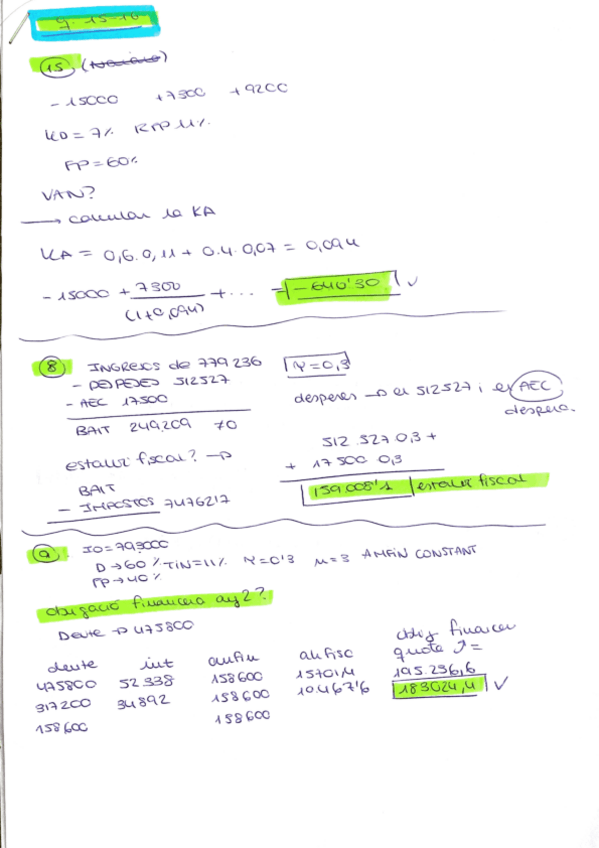 g. 15-16
15
-15000 +7300 +9200
KD = 7% RFP 11%
FP = 60%
VAN?
→ calcular la KA
KA = 0,6 · 0,11 + 0.4 · 0,07 = 0,094
-15000 + 7300/(1+0,094) + ... = -640'30 ✓
8 INGRESOS de 779236 γ=0,3
- DESPESES 512527
- AEC 17500
BAIT 249.209 70
despeses → es 512527 i es AEC
despesa.
512.527 0,3 +
+ 17500 0,3
159.008'1 estalvi fiscal
estalvi fiscal? →
BAIT
- IMPOSTOS 74762'7
9 IO = 793000
D → 60% TIN = 11% γ = 0'3 n = 3 AMFIN CONSTANT
FP → 40%
obligació financera any 2?
Deute → 475800
deute int amfin aufisc oblig financer
quota
475800 52338 158600 15701,4 195.236,6
317200 34892 158600 10.467'6 183024,4 ✓
158600 158600